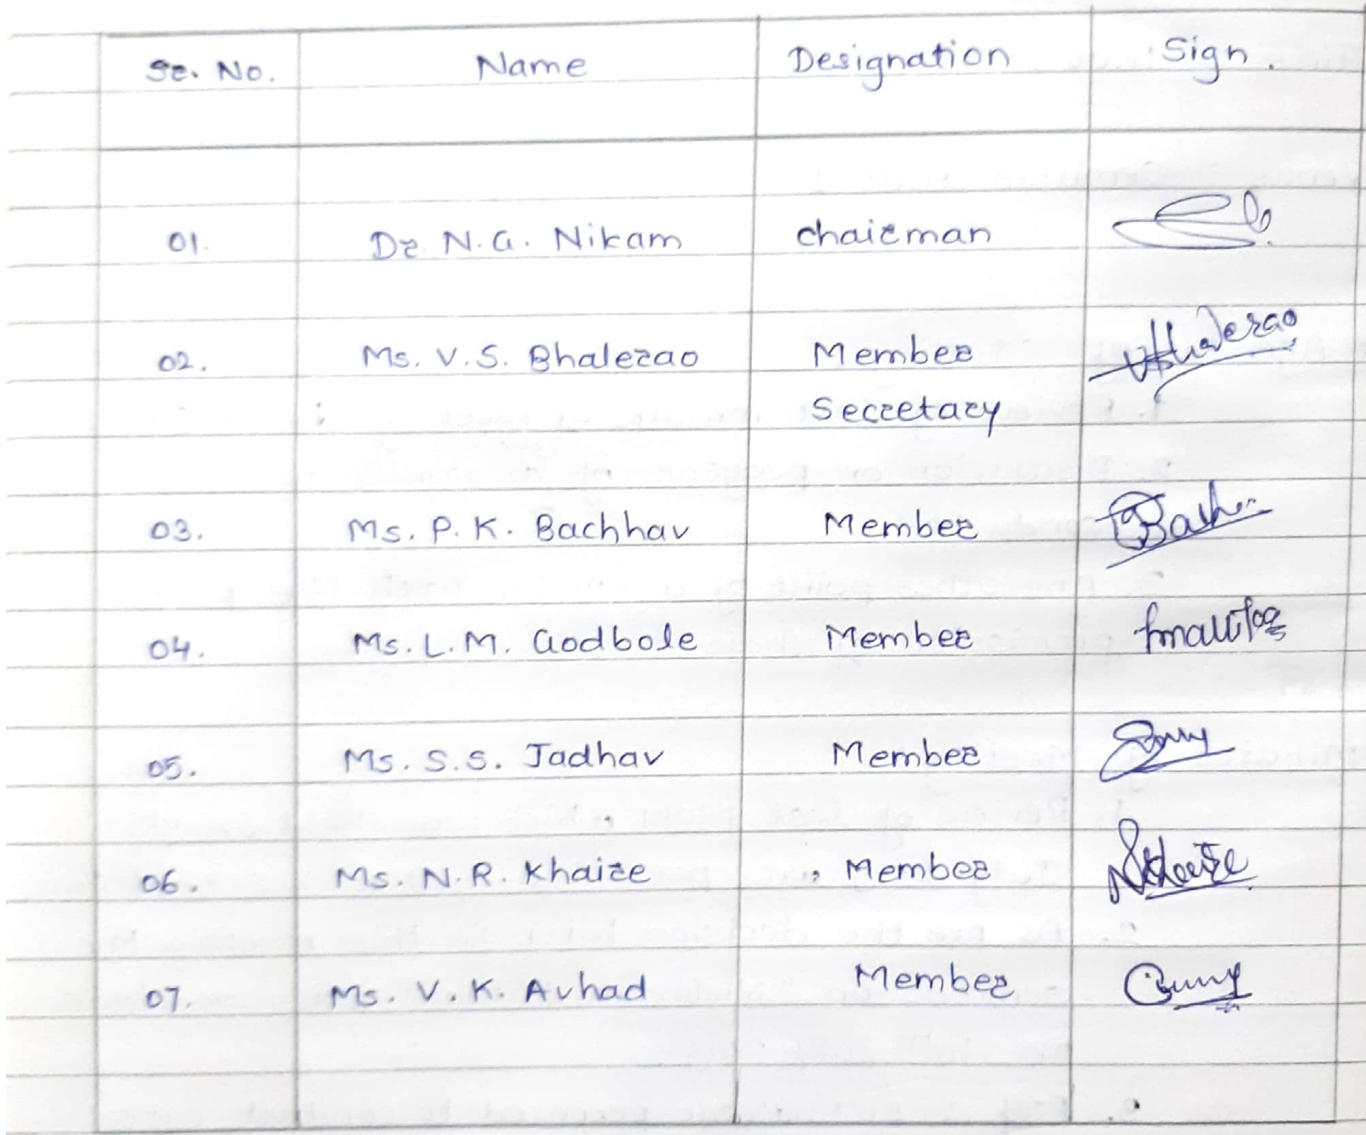 Sr. No. Name Designation Sign.
01. Dr. N. G. Nikam chairman
02. Ms. V. S. Bhalerao Member
Secretary
03. Ms. P. K. Bachhav Member
04. Ms. L. M. Godbole Member
05. Ms. S. S. Jadhav Member
06. Ms. N. R. Khaire Member
07. Ms. V. K. Avhad Member